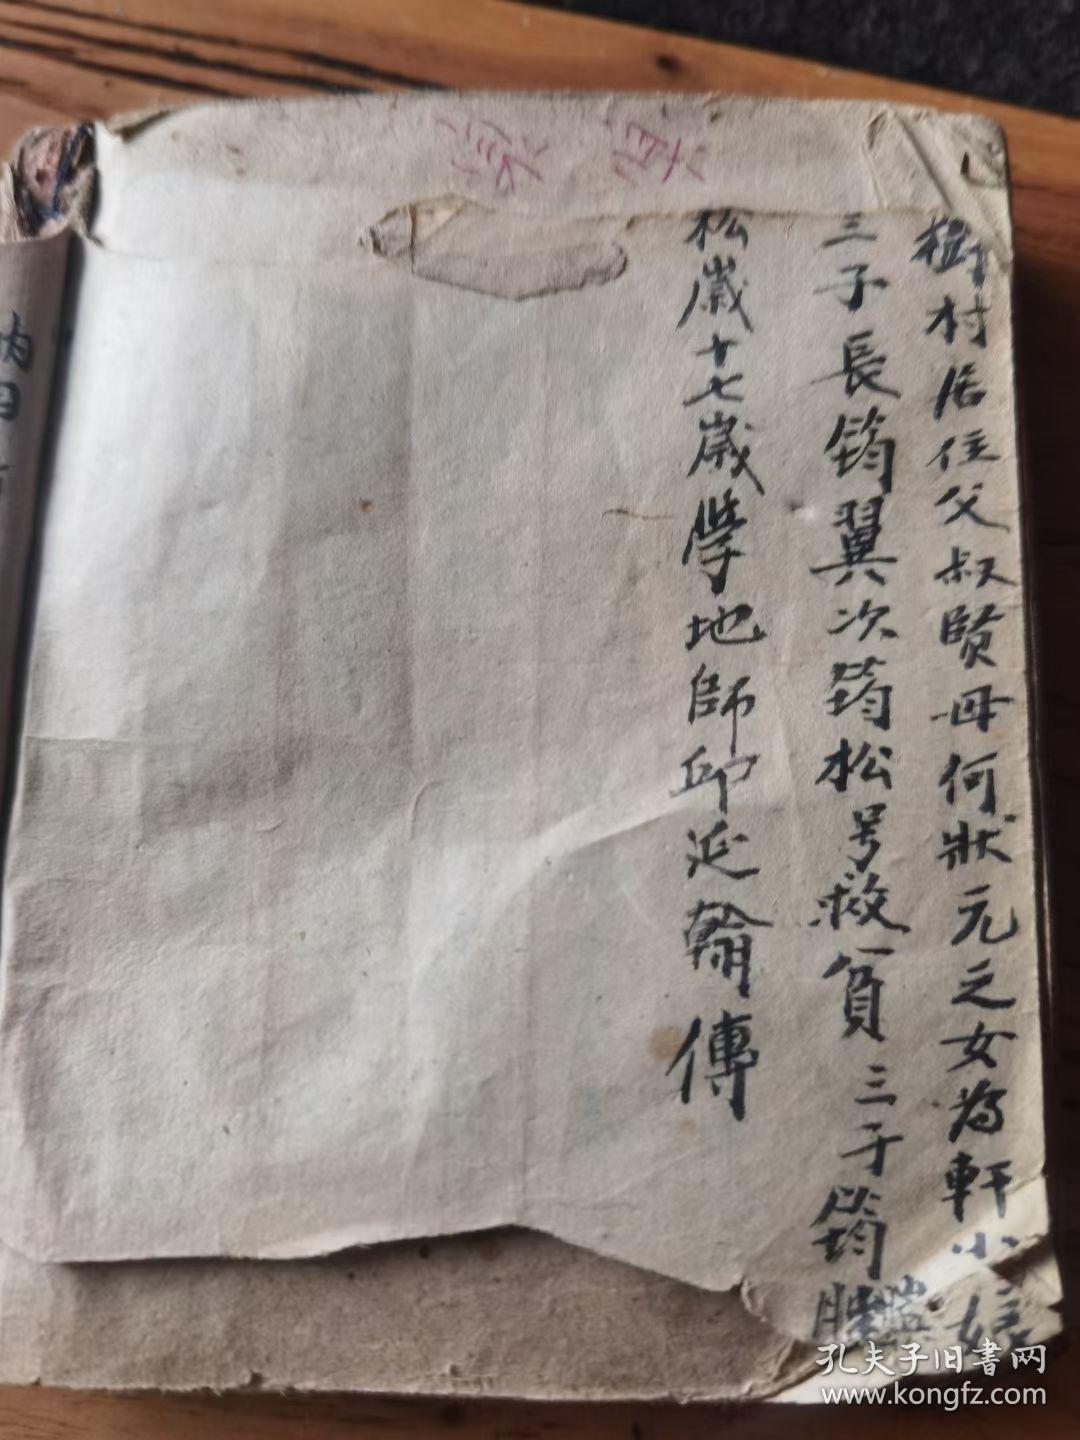 樹村居住父叔賢母何狀元之女為軒小娘
三子長筠翼次筠松号救貧三子筠
松歲十七歲學地師邱延翰傳
孔夫子旧書网
www.kongfz.com